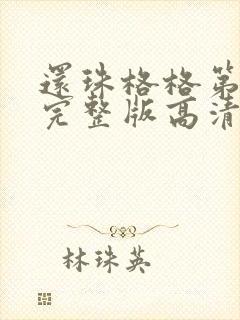 還珠格格第
完整版高清
林珠英